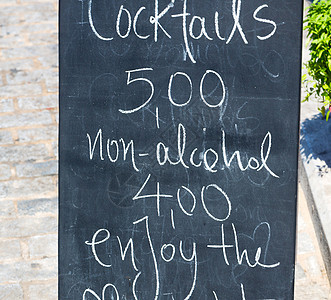 Cocktails
5,00
non-alcohol
4,00
enjoy the